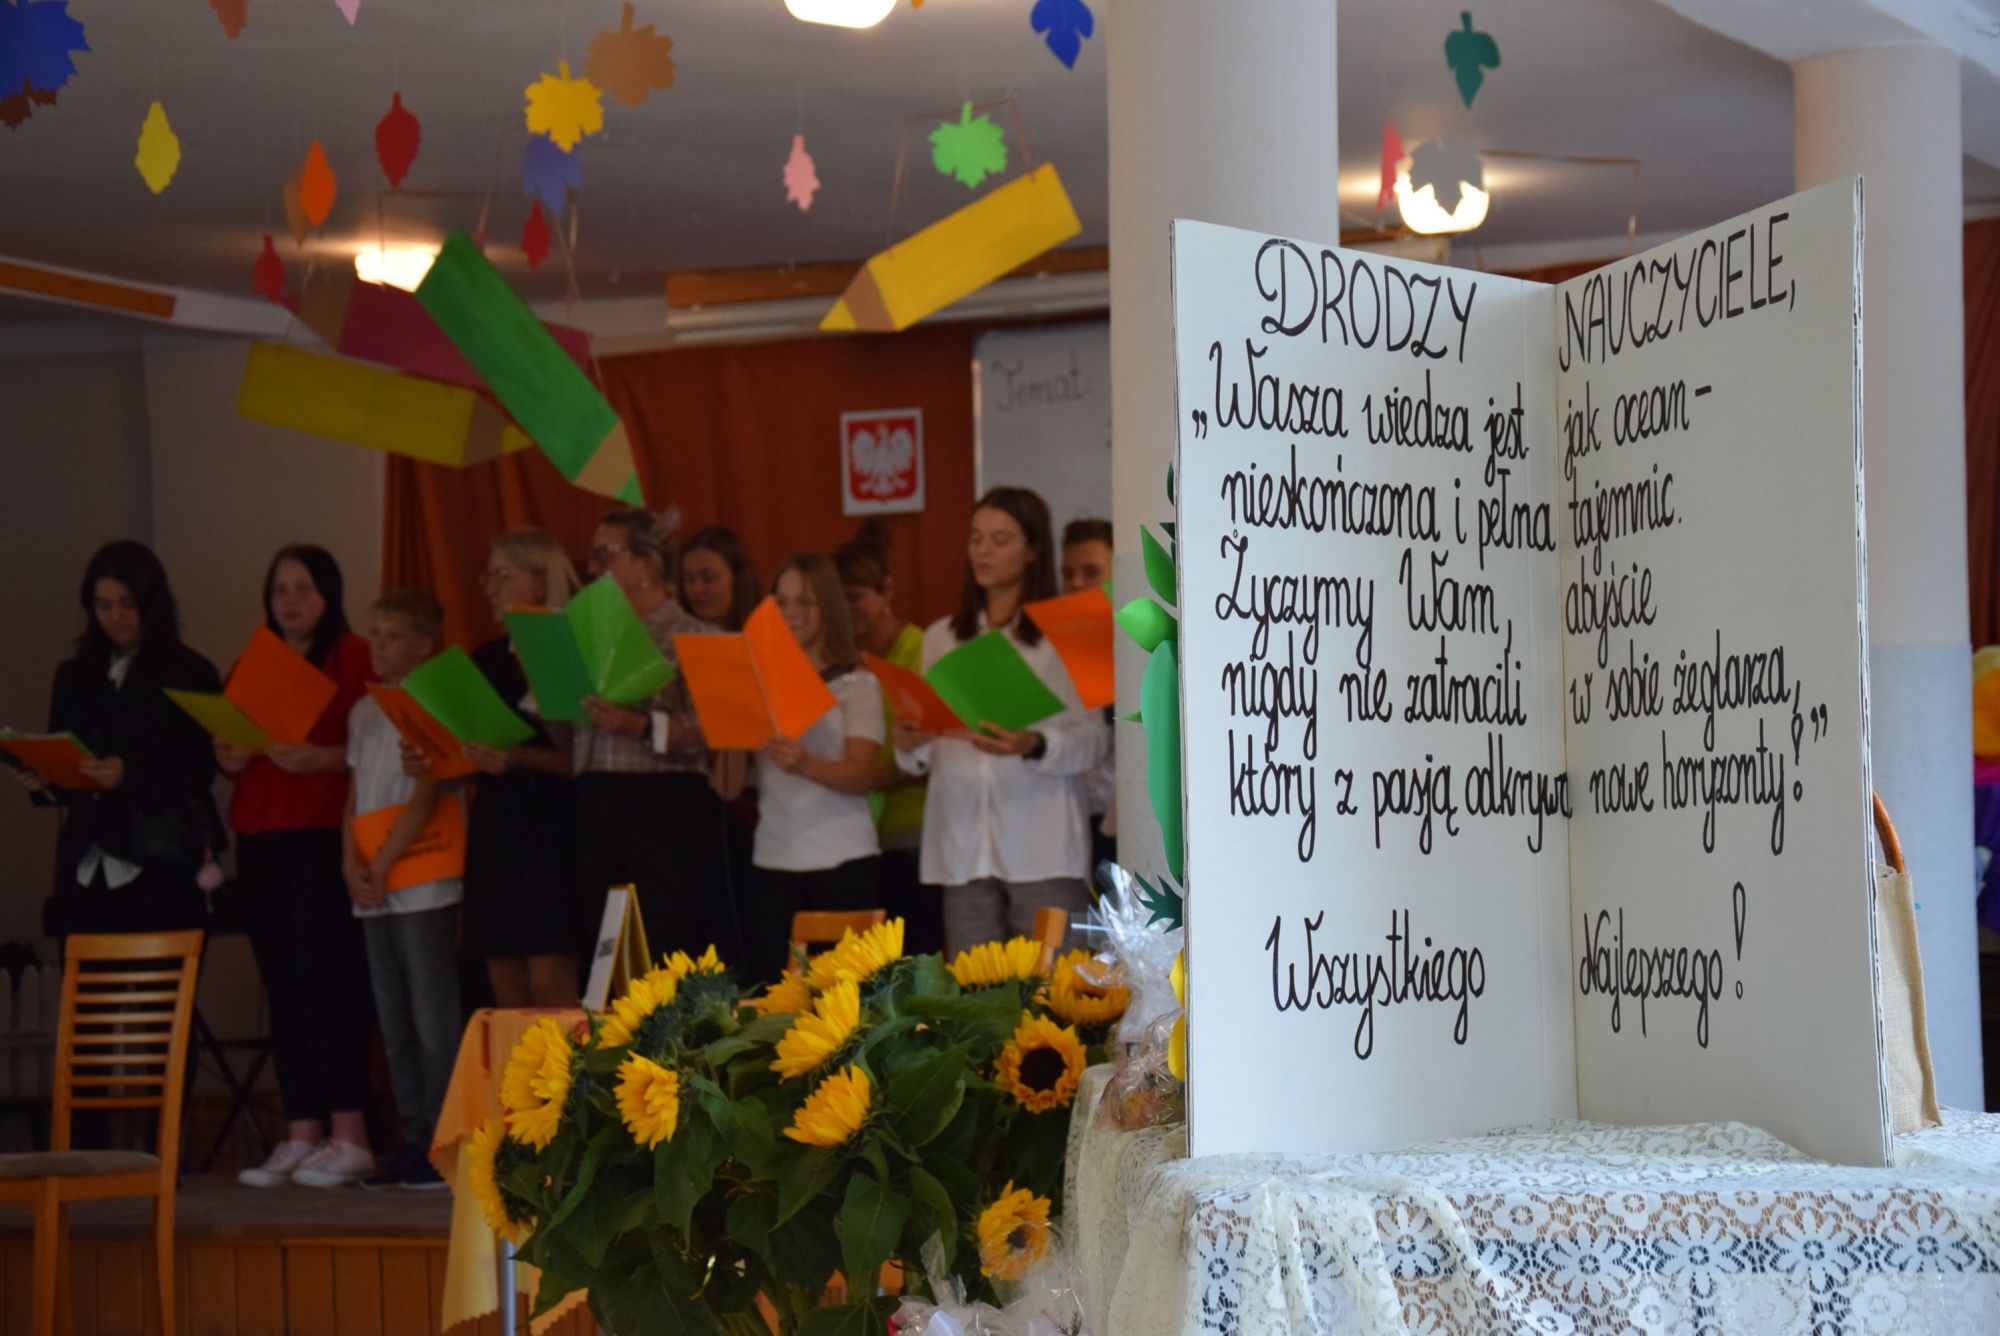 Temat
DRODZY NAUCZYCIELE,
„Wasza wiedza jest jak ocean-
nieskończona i pełna tajemnic.
Życzymy Wam, abyście
nigdy nie zatracili w sobie żeglarza,
który z pasją odkrywa nowe horyzonty!”
Wszystkiego Najlepszego!